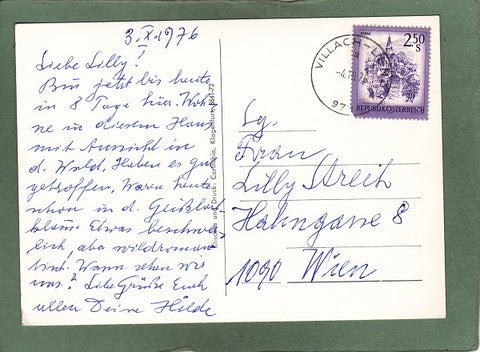 3.X.1976
Liebe Lilly!
Bin jetzt bis heute
in 8 Tage hier. Woh-
ne in diesem Haus
mit Aussicht in
d. Wald. Haben es gut
getroffen, Waren heute
schon in d.
klamm. Etwas beschwer
lich, aba wildroman
tisch. Wann sehen wir
uns? Liebe Grüße Euch
allen Deine Hilde
Klischee und Druck: Carinthia, Klagenfurt
VILLACH
2.50
S
REPUBLIK ÖSTERREICH
Sg.
Frau
Lilly Streit
Hahngasse 8
1090 Wien